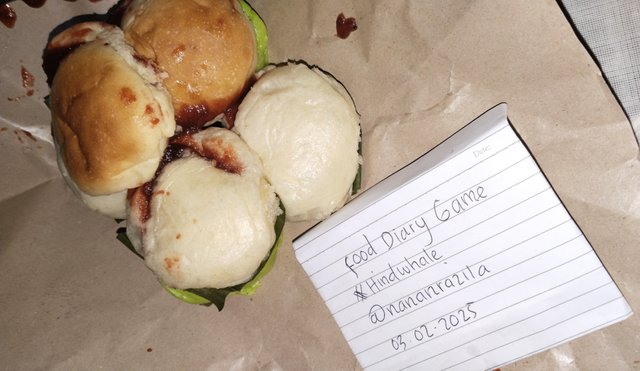 Date:
Food Diary Game
#Hindwhale
@nananrazila
03.02.2025